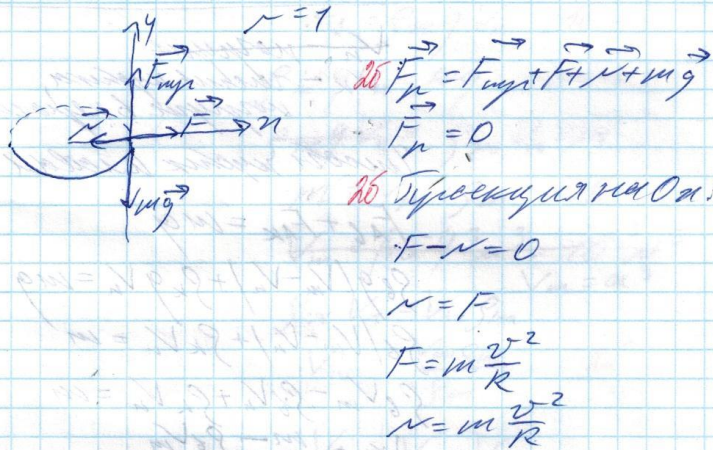 μ = 1
y
Fтр
N F x
mg
2б Fп = Fтр + F + N + mg
Fп = 0
2б Проекция на Ox:
F - N = 0
N = F
F = m v²/R
N = m v²/R